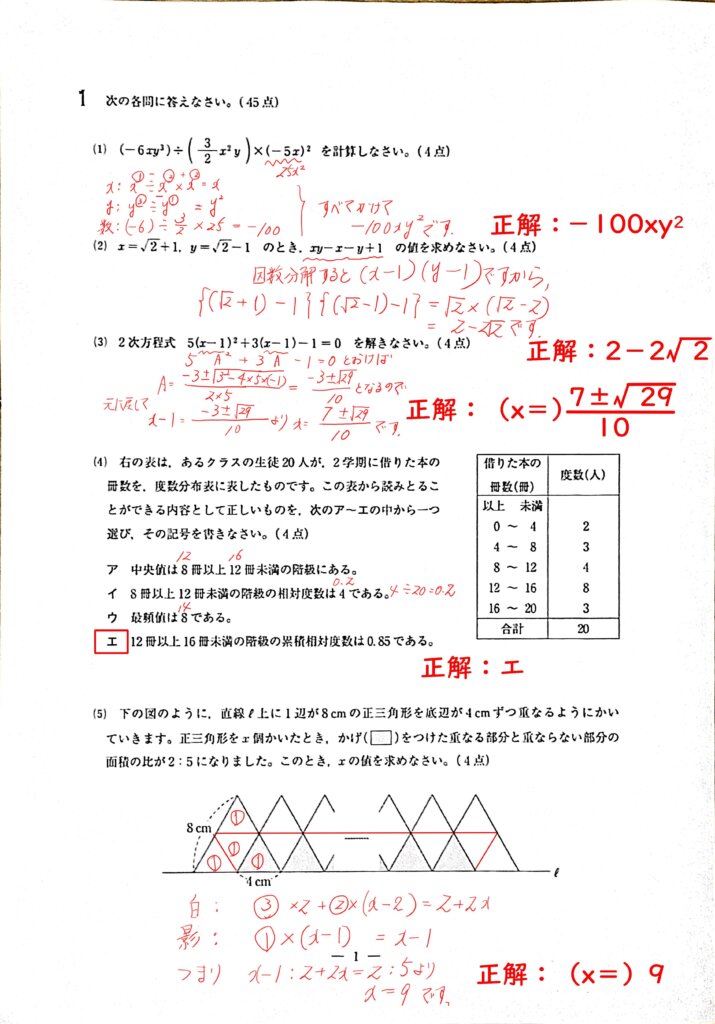 1 次の各問に答えなさい。(45点)
(1) (−6xy³)÷(3/2 x²y)×(−5x)² を計算しなさい。(4点)
25x²
x: x^①÷x^②×x^②=x
y: y^③÷y^① = y²
数: (−6)÷3/2×25=−100
すべてかけて
−100xy²です。
正解：−100xy²
(2) x=√2+1, y=√2−1 のとき, xy−x−y+1 の値を求めなさい。(4点)
因数分解すると (x−1)(y−1)ですから,
{(√2+1)−1}{(√2−1)−1}=√2×(√2−2)
=2−2√2です。
正解：2−2√2
(3) 2次方程式 5(x−1)²+3(x−1)−1=0 を解きなさい。(4点)
5A²+3A−1=0 とおけば
A=(−3±√(3²−4×5×(−1)))/(2×5)=(−3±√29)/10 となるので
元に戻して
x−1=(−3±√29)/10 より x=(7±√29)/10 です。
正解：(x=)(7±√29)/10
(4) 右の表は, あるクラスの生徒20人が, 2学期に借りた本の
冊数を, 度数分布表に表したものです。この表から読みとるこ
とができる内容として正しいものを, 次のア〜エの中から一つ
選び, その記号を書きなさい。(4点)
12 16
ア 中央値は8冊以上12冊未満の階級にある。
0.2
イ 8冊以上12冊未満の階級の相対度数は4である。4÷20=0.2
14
ウ 最頻値は8である。
エ 12冊以上16冊未満の階級の累積相対度数は0.85である。
正解：エ
借りた本の冊数(冊) 度数(人)
以上 未満
0 〜 4 2
4 〜 8 3
8 〜 12 4
12 〜 16 8
16 〜 20 3
合計 20
(5) 下の図のように, 直線ℓ上に1辺が8cmの正三角形を底辺が4cmずつ重なるようにかい
ていきます。正三角形をx個かいたとき, かげ( )をつけた重なる部分と重ならない部分の
面積の比が2：5になりました。このとき, xの値を求めなさい。(4点)
8cm
①
① ① ①
4cm
ℓ
白： ③×2+②×(x−2)=2+2x
影： ①×(x−1) =x−1
— 1 —
つまり x−1：2+2x=2：5より
x=9です。
正解：(x=) 9